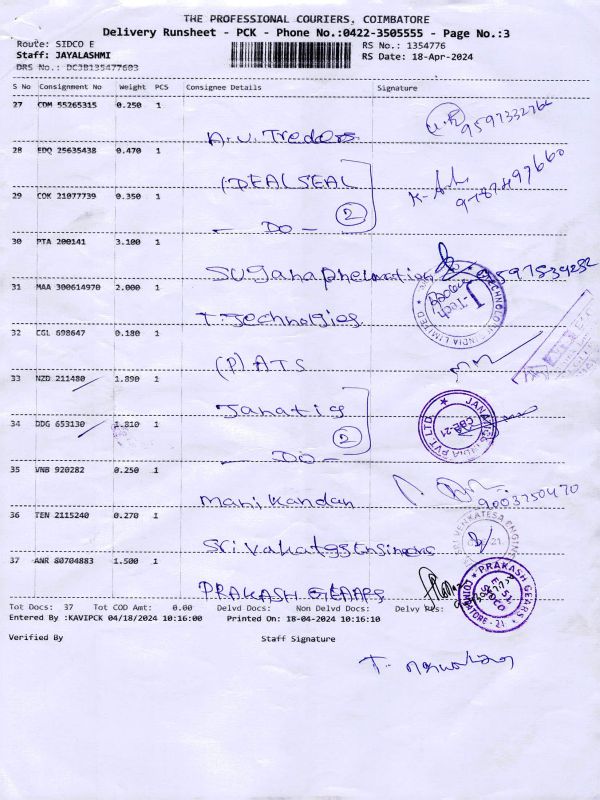 THE PROFESSIONAL COURIERS, COIMBATORE
Delivery Runsheet - PCK - Phone No.:0422-3505555 - Page No.:3
Route: SIDCO E
RS No.: 1354776
Staff: JAYALAKSHMI
RS Date: 18-Apr-2024
DRS No.: DCJB135477603
S No Consignment No Weight PCS Consignee Details Signature
27 COM 55265315 0.250 1
A.V. Treders 9597332766
28 EDQ 25635438 0.470 1
IDEAL SEAL
2
9787497660
29 COK 21077739 0.350 1
- DO -
30 PTA 200141 3.100 1
9597534232
31 MAA 300614970 2.000 1
T. Technolgies
32 CGL 698647 0.180 1
(P) ATS
33 NZD 211480 1.890 1
Janatig
2
34 DDG 653130 1.810 1
- DO -
35 VNB 920282 0.250 1
Manikandan
9003750470
36 TEN 2115240 0.270 1
37 ANR 80704883 1.500 1
PRAKASH GEARS
PRAKASH GEARS
Tot Docs: 37 Tot COD Amt: 0.00 Delvd Docs: Non Delvd Docs: Delvy Res:
Entered By :KAVIPCK 04/18/2024 10:16:00 Printed On: 18-04-2024 10:16:10
Verified By Staff Signature